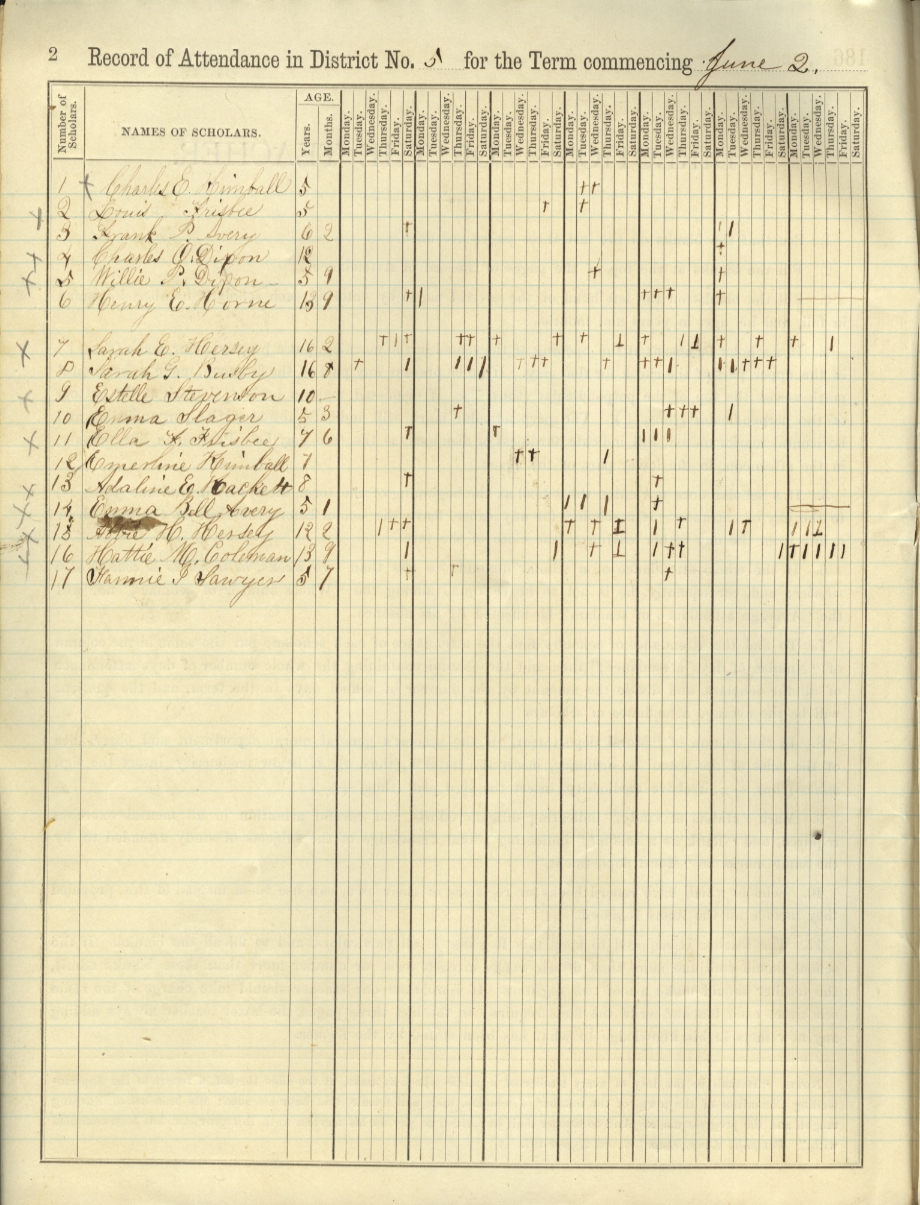 2 Record of Attendance in District No. 5 for the Term commencing June 2.
Number of Scholars. NAMES OF SCHOLARS. AGE. Years. Months. Monday. Tuesday. Wednesday. Thursday. Friday. Saturday. Monday. Tuesday. Wednesday. Thursday. Friday. Saturday. Monday. Tuesday. Wednesday. Thursday. Friday. Saturday. Monday. Tuesday. Wednesday. Thursday. Friday. Saturday. Monday. Tuesday. Wednesday. Thursday. Friday. Saturday. Monday. Tuesday. Wednesday. Thursday. Friday. Saturday. Monday. Tuesday. Wednesday. Thursday. Friday. Saturday.
1 Charles E. Kimball 5
2 Louis Frisbee 5
3 Frank P. Avery 6 2
4 Charles O. Dixon 12
5 Willie P. Dixon 5 9
6 Henry E. Horne 13 9
7 Sarah E. Hersey 16 2
8 Sarah G. Busby 16 8
9 Estelle Stevenson 10
10 Emma Slager 5 3
11 Ella F. Frisbee 7 6
12 Emerline Kimball 7
13 Adaline E. Hackett 8
14 Emma Bell Avery 5 1
15 H. Hersey 12 2
16 Hattie M. Coleman 13 9
17 Fannie Sawyer 5 7